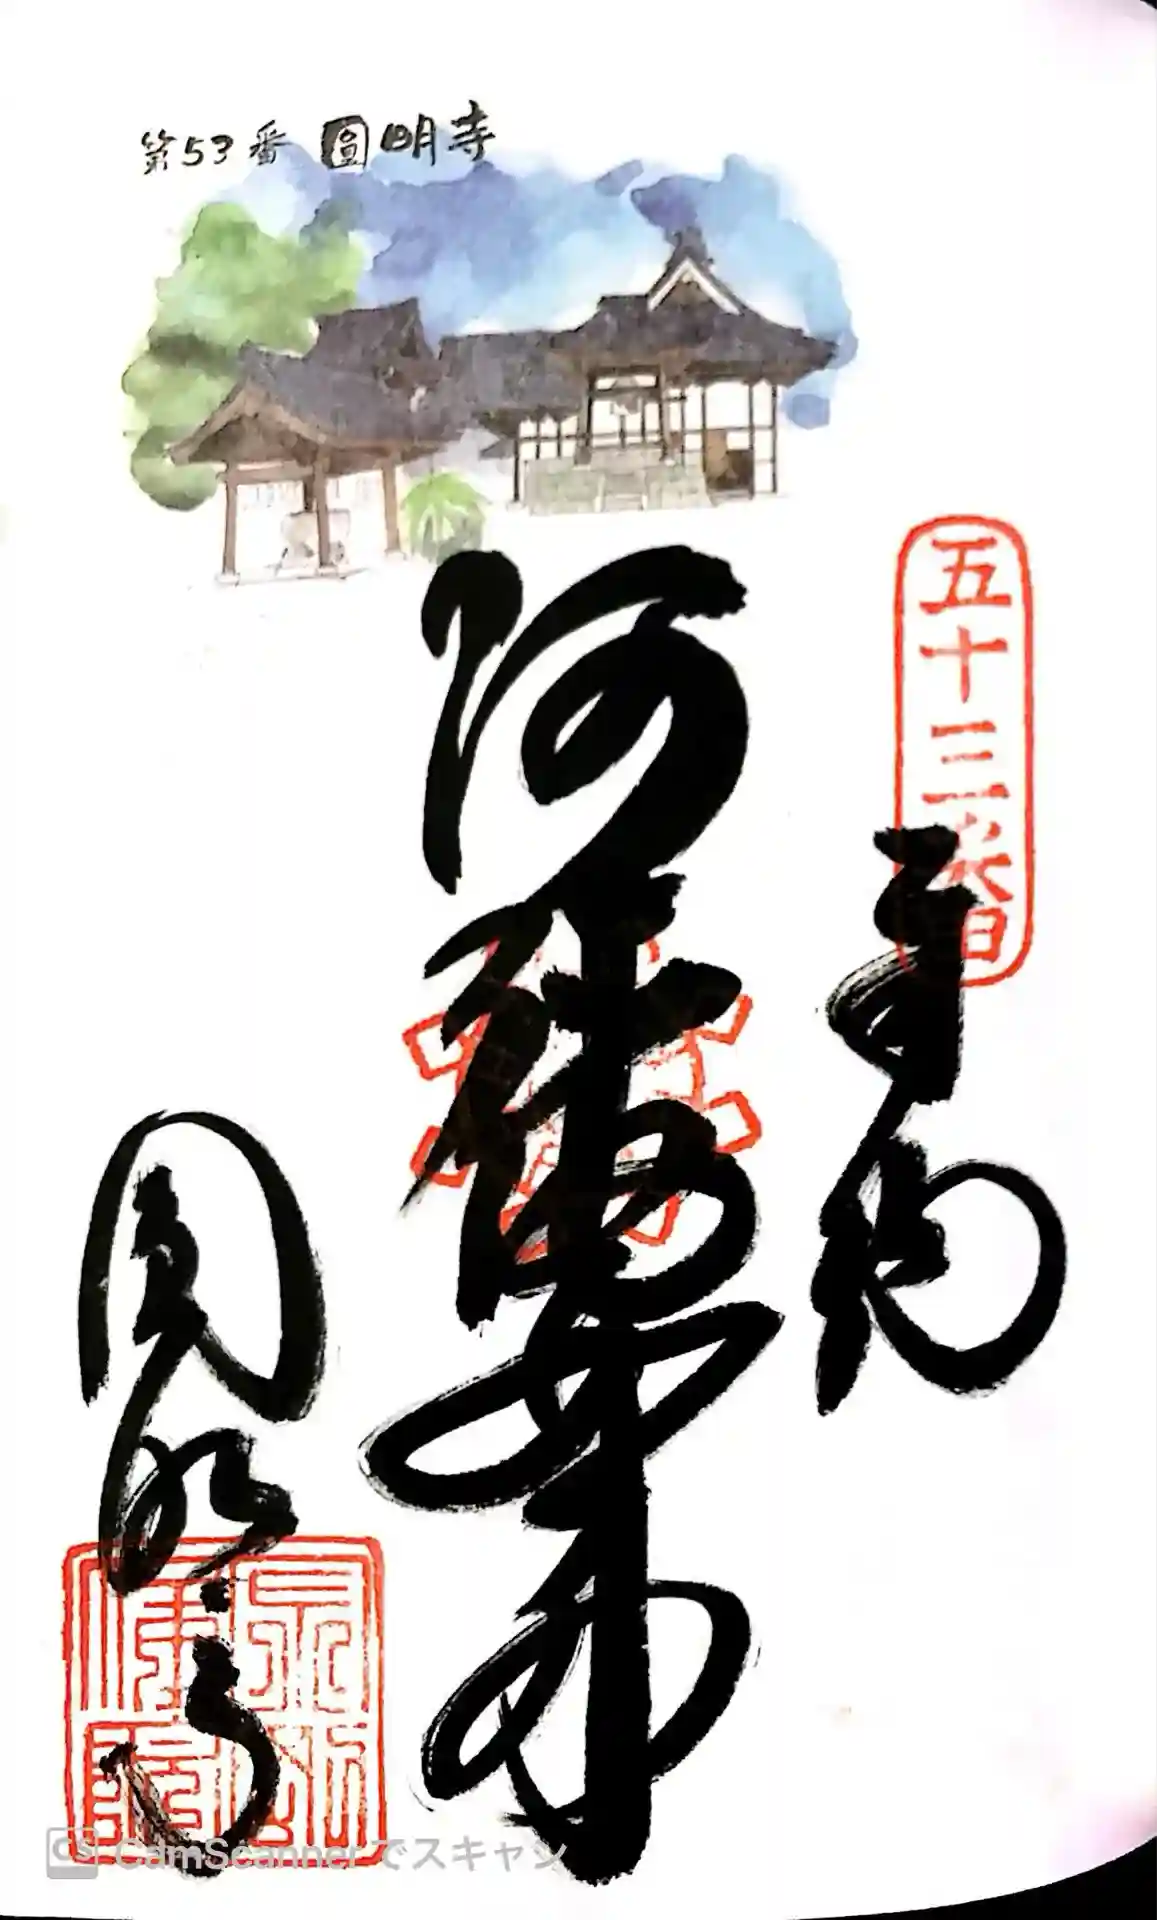 第53番 圓明寺
五十三番
奉納
阿弥陀如来
圓明寺
CamScanner でスキャン